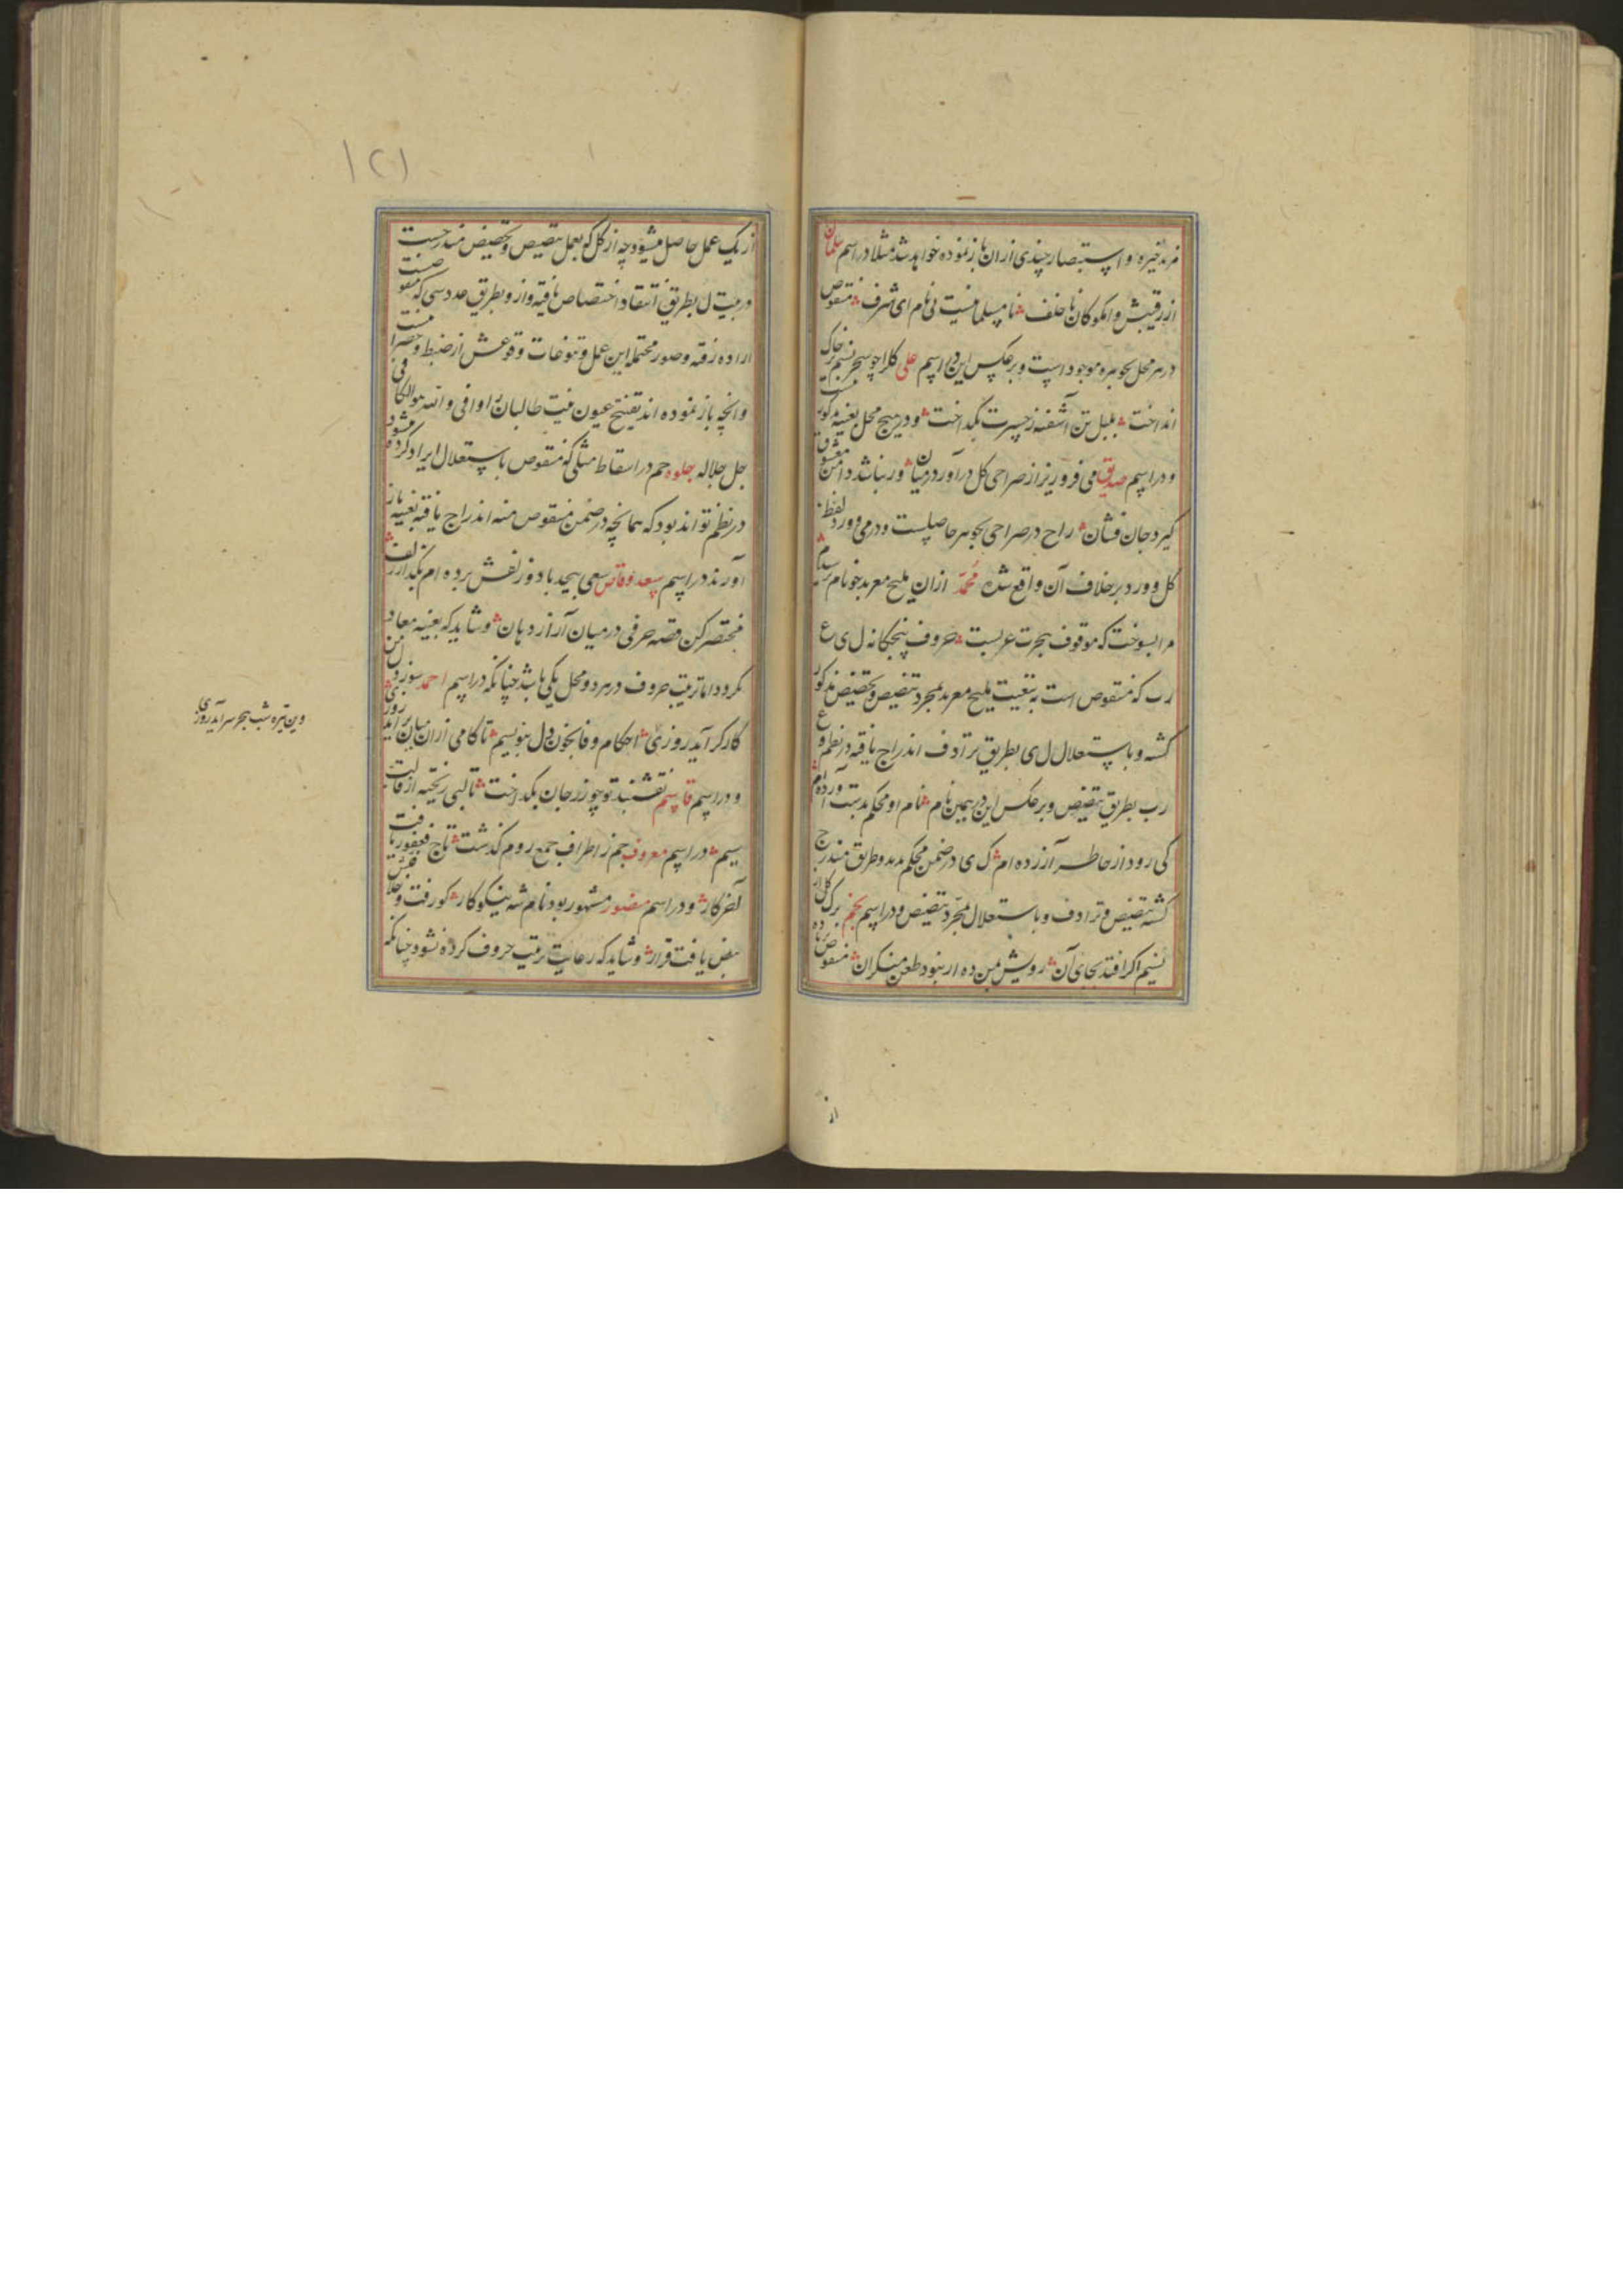 مزید خیره و استبصار چندی ازان باز نموده خواهد شد مثلا در اسم سلمان
از رقیبش وامکو کان ناخلف نامسلمانیست نی نام ای شرف منقوص
در هر محل بجوهره موجود است و برعکس این در اسم علی کلا چو سحر نسیم بر خاک
انداخت بلبل تن آشفته ز حسرت بگداخت و در هیچ محل بعینه مذکور نیست
و در اسم صدیق می فرو ریز از صراحی گل درآور در میان ور نباشد دامن معشوق
گیر و جان فشان راح در صراحی بجوهر حاصلست و در می و ورد لفظ
گل و ورد برخلاف آن واقع شده محمد ازان ملیح معربد خو نام
مرا بسوخت که موقوف بجرت عربست حروف پنجگانه ل ی ع
رب که منقوص است به تبعیت ملیح معربد بمجرد تنصیص و تخصیص مذکور
گشته و باستقلال ل ی بطریق ترادف اندراج یافته در نظم و ع
رب بطریق تنصیص و برعکس این در همین نام نام او محکم بدست آورده ام
کی رود از خاطر آزرده ام ک ی در ضمن محکم بدو طریق مندرج
گشته تنصیص و ترادف و باستقلال مجرد تنصیص و در اسم نجم برک گل از
نسیم اگر افتد بجای آن رویش ببین ده ار بنود طعن منکران منقوص
از
از یک عمل حاصل میشود چه از کل کو بعمل تنصیص و تخصیص مندرجست
در بیت ل بطریق انتقاد اختصاص یافته و از و بطریق عددسی که
اراده رفته و صور محتمله این عمل و تنوعات وقوعش از ضبط و حصر
وانچه باز نموده اند تفتیح عیون نیت طالبان را وافی والله هو الکافی
جل جلاله جلوه حم در اسقاط مثلی که منقوص باستقلال ایراد کرده شود
در نظم تواند بود که همانچه در ضمن منقوص منه اندراج یافته بعینه باز
آورند در اسم سعد وقاص سعی بیحد باد و زلفش برده ام بگذار زلف
مختصر کن قصه حرفی در میان آر از دهان و شاید که بعینه معاد
نکرود اما ترتیب حروف در هر دو محل یکی باشد چنانکه در اسم احمد
کار گر آید روزی احکام وفا بخون دل بنویسم تا کامی ازان میان برآید روزی
و در اسم قاسم نقشبند تو چو زر جان بگداخت تا لبی ریخته از قالب
سیم در اسم معروف جم ز اطراف جمع روم گذشت تاج فغفور یافت
آخر کار و در اسم منصور مشهور بود نام شه نیکوکار کو رفت و
بیض یافت قرار و شاید که رعایت ترتیب حروف کرده نشود چنانکه
وین تیره شب هجر سرآید روزی